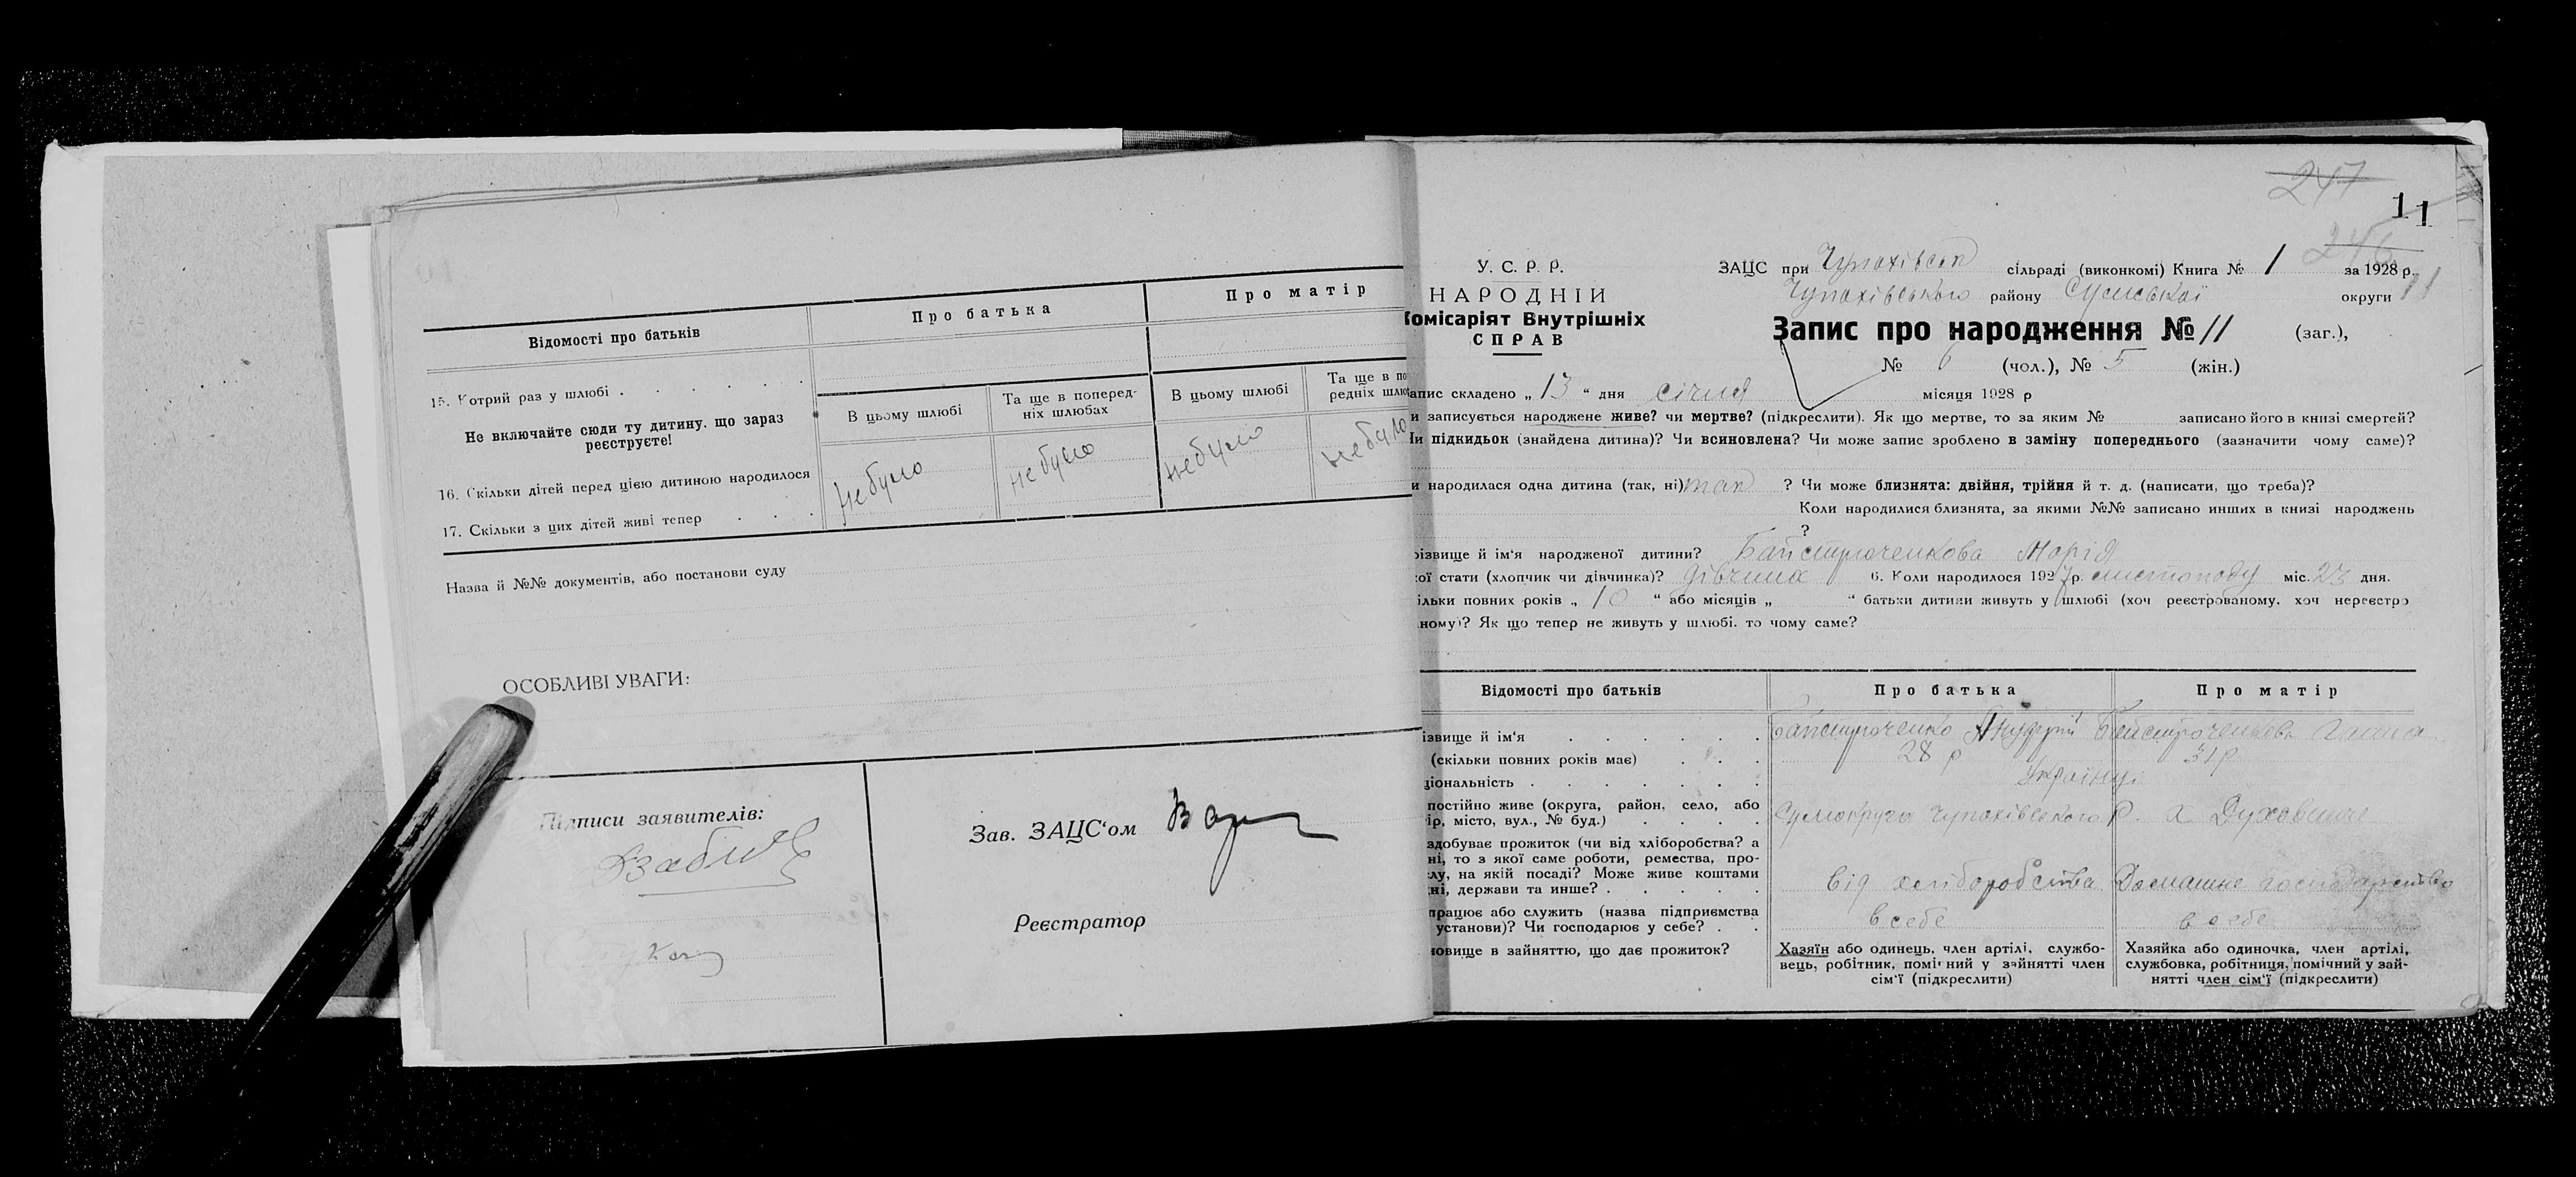 Відомості про батьків
Про батька
Про матір
15. Котрий раз у шлюбі
Не включайте сюди ту дитину, що зараз
реєструєте!
В цьому шлюбі
Та ще в поперед-
ніх шлюбах
В цьому шлюбі
Та ще в по
редніх шлю
16. Скільки дітей перед цією дитиною народилося
не було не було не було не було
17. Скільки з цих дітей живі тепер
Назва й №№ документів, або постанови суду
ОСОБЛИВІ УВАГИ:
Підписи заявителів:
Зав. ЗАЦС‘ом
Реєстратор
247
11
246
У. С. Р. Р.
НАРОДНІЙ
Комісаріят Внутрішніх
СПРАВ
ЗАЦС при Чупахівськ сільраді (виконкомі) Книга № 1 за 1928 р.
Чупахівського району Сумської округи 11
Запис про народження № 11 (заг.),
№ 6 (чол.), № 5 (жін.)
апис складено „ 13 “ дня січня місяця 1928 р
и записується народжене живе? чи мертве? (підкреслити). Як що мертве, то за яким № записано його в книзі смертей?
Чи підкидьок (знайдена дитина)? Чи всиновлена? Чи може запис зроблено в заміну попереднього (зазначити чому саме)?
и народилася одна дитина (так, ні) так ? Чи може близнята: двійня, трійня й т. д. (написати, що треба)?
Коли народилися близнята, за якими №№ записано инших в книзі народжень
?
різвище й ім‘я народженої дитини? Байстрюченкова Марія
кої стати (хлопчик чи дівчинка)? дівчина 6. Коли народилося 1927 р. листопаду міс. 23 дня.
ільки повних років „ 10 “ або місяців „ “ батьки дитини живуть у шлюбі (хоч реєстрованому, хоч нереєстро
ному)? Як що тепер не живуть у шлюбі, то чому саме?
Відомості про батьків
Про батька
Про матір
ізвище й ім‘я
Байстрюченко Байстрюченкова Ганна
(скільки повних років має)
28 р 31 р
ціональність
Українці
постійно живе (округа, район, село, або
ір, місто, вул., № буд.)
Сумокруги Чупахівського Р. х. Духовише
здобуває прожиток (чи від хліборобства? а
ні, то з якої саме роботи, ремества, про-
лу, на якій посаді? Може живе коштами
ні, держави та инше?
від хліборобства Домашне господарство
працює або служить (назва підприємства
установи)? Чи господарює у себе?
в себе в себе
новище в зайняттю, що дає прожиток?
Хазяїн або одинець, член артілі, службо-
вець, робітник, помічний у зайнятті член
сім‘ї (підкреслити)
Хазяйка або одиночка, член артілі,
службовка, робітниця, помічний у зай-
нятті член сім‘ї (підкреслити)